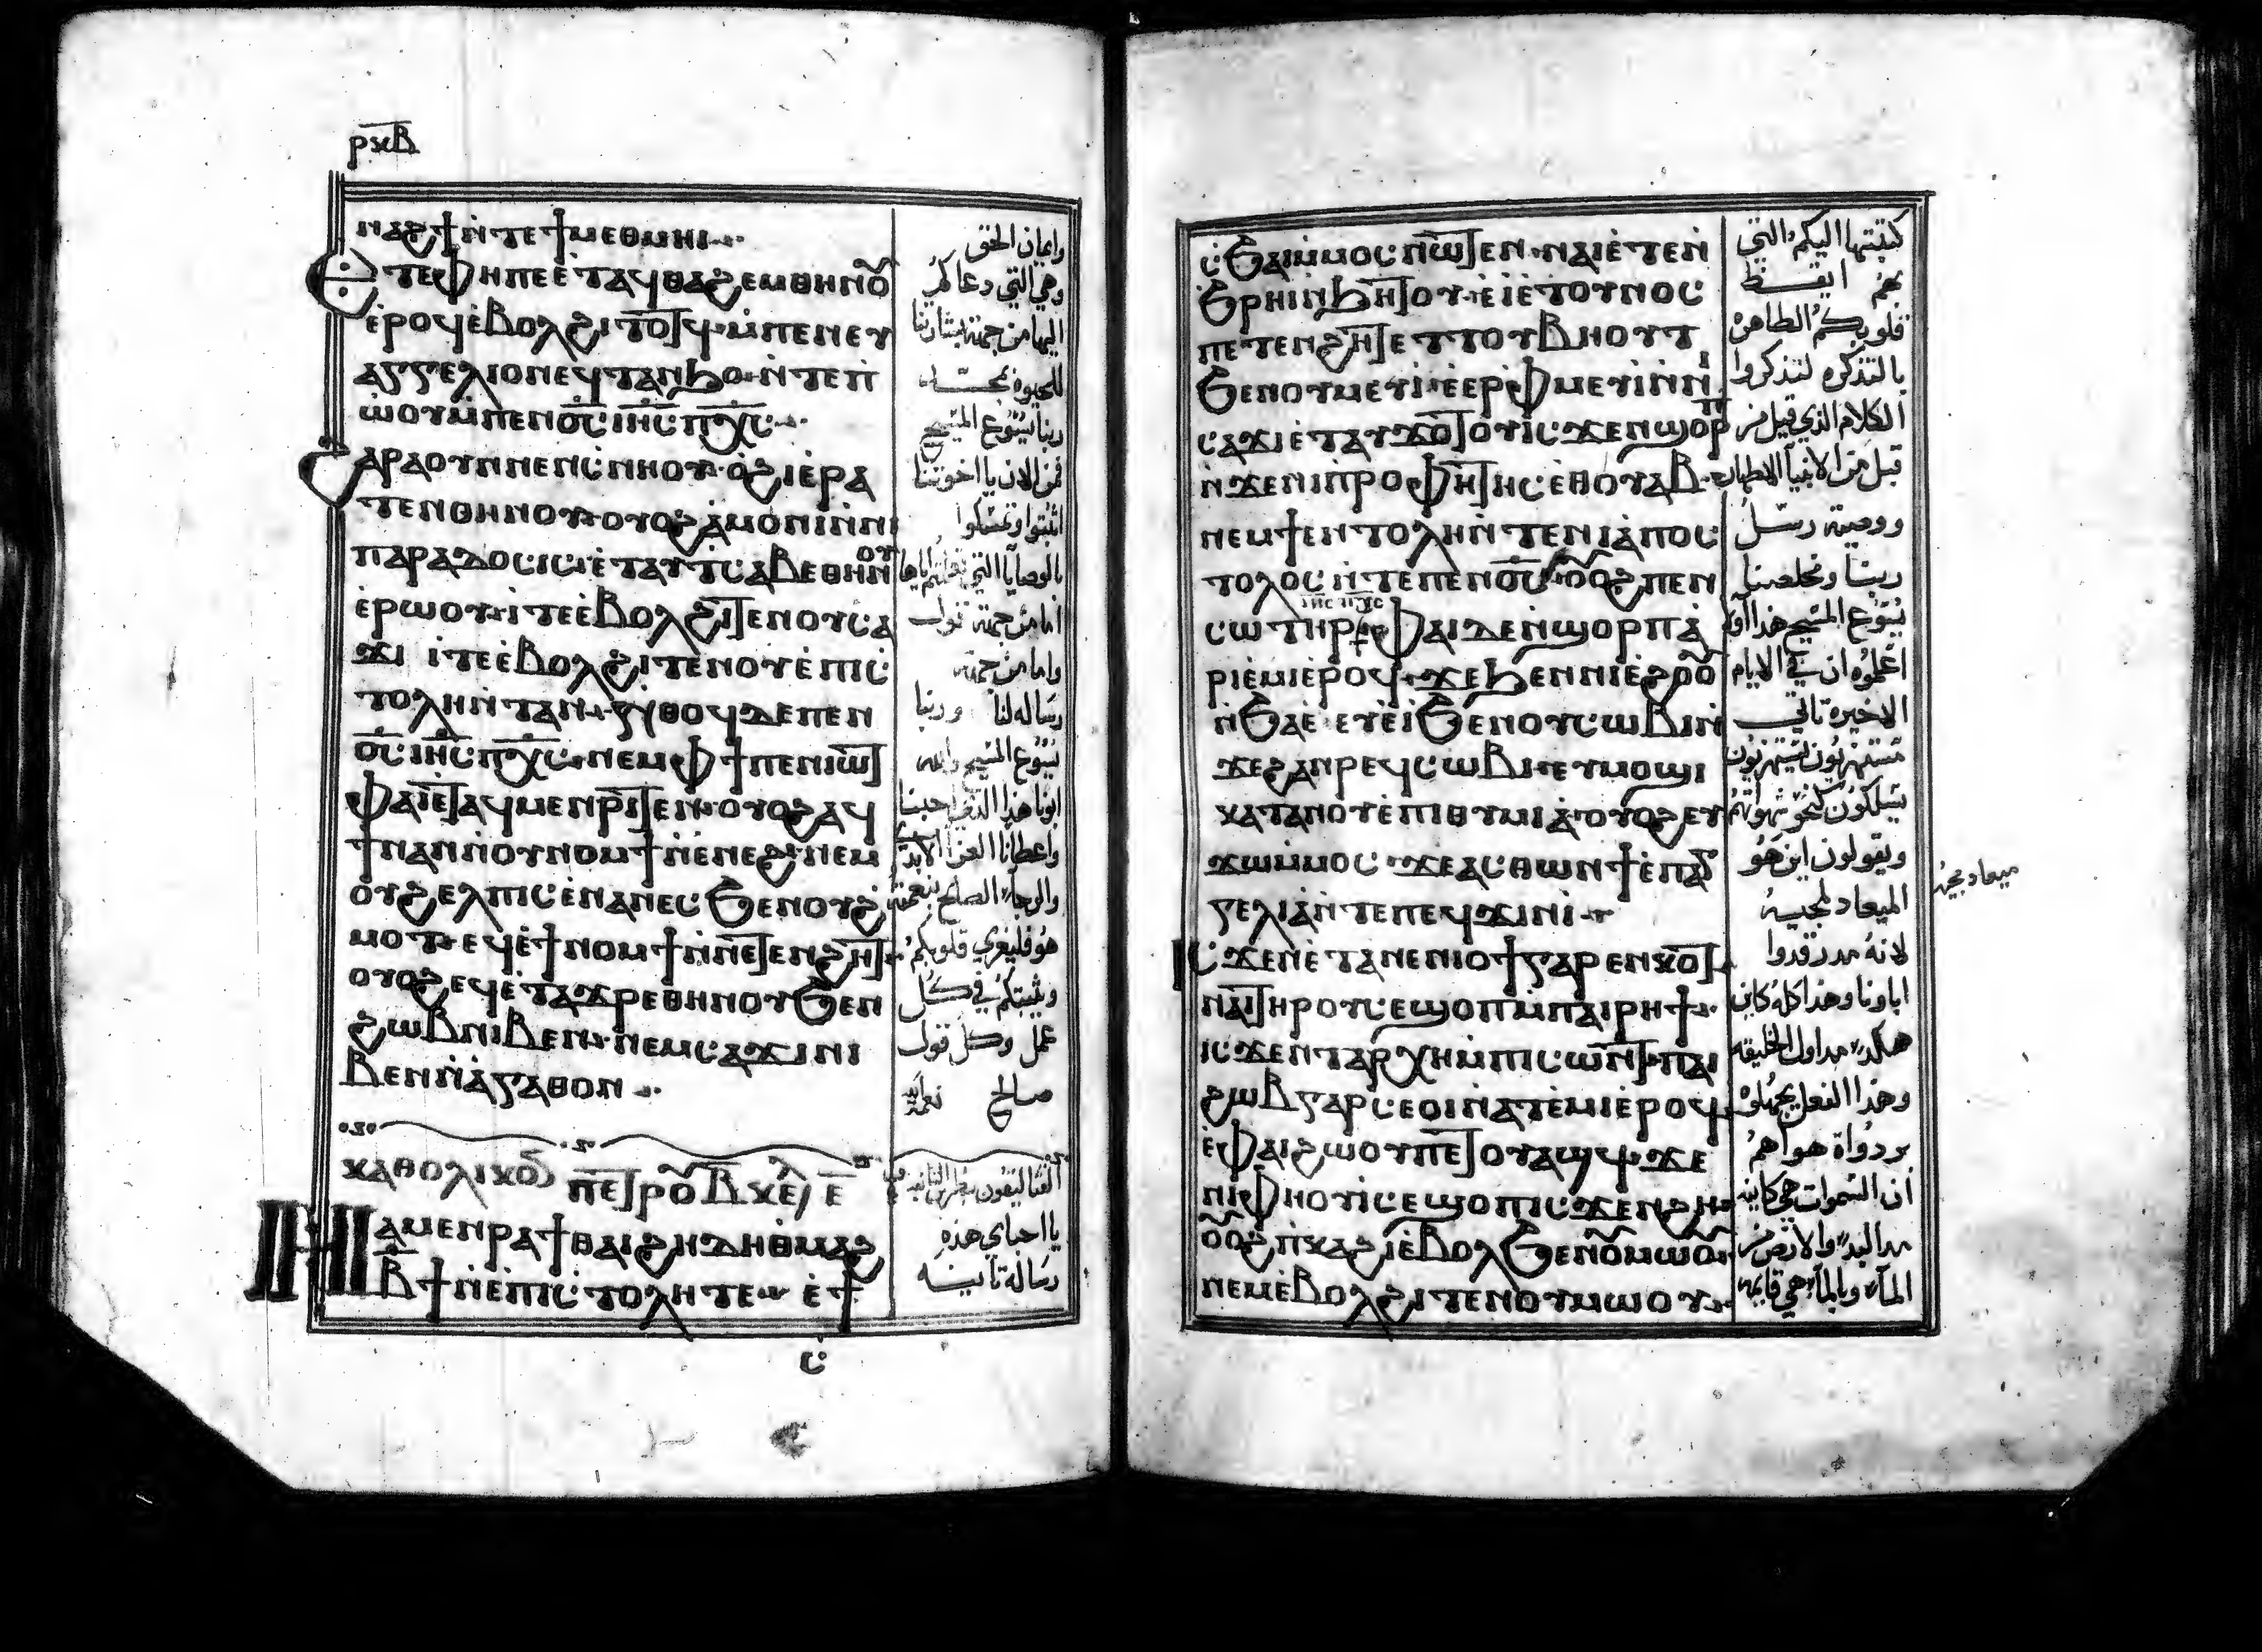 ⲣⲝⲃ
ⲛⲁϩϯ ⲛ̀ⲧⲉ ϯⲙⲉⲑⲙⲏⲓ
ⲑⲏ ⲧⲉ ⲫⲏⲡⲉ ⲉ̀ⲧⲁϥⲑⲁϩⲉⲙⲑⲏⲛⲟⲩ
ⲉ̀ⲣⲟϥ ⲉ̀ⲃⲟⲗϩⲓⲧⲟⲧϥ ⲙ̀ⲡⲉⲛⲉⲩ
ⲁⲅⲅⲉⲗⲓⲟⲛ ⲉⲩⲧⲁⲛϧⲟ ⲛ̀ⲧⲉ ⲡ̀
ⲱ̀ⲟⲩ ⲙ̀ⲡⲉⲛⲟ̅ⲥ̅ ⲓⲏ̅ⲥ̅ ⲡⲭ̅ⲥ̅
ϩⲁⲣⲁ ⲟⲩⲛ ⲛⲉⲛⲥ̀ⲛⲏⲟⲩ ⲟ̀ϩⲓ ⲉ̀ⲣⲁ
ⲧⲉⲛⲑⲏⲛⲟⲩ ⲟⲩⲟϩ ⲁ̀ⲙⲟⲛⲓ ⲛ̀ⲛⲓ
ⲡⲁⲣⲁⲇⲟⲥⲓⲥ ⲉ̀ⲧⲁⲩⲧⲥⲁⲃⲉⲑⲏⲛⲟⲩ
ⲉ̀ⲣⲱⲟⲩ ⲓⲧⲉ ⲉ̀ⲃⲟⲗϩⲓⲧⲉⲛ ⲟⲩⲥⲁ
ϫⲓ ⲓⲧⲉ ⲉ̀ⲃⲟⲗϩⲓⲧⲉⲛ ⲟⲩⲉ̀ⲡⲓⲥ̀
ⲧⲟⲗⲏ ⲛ̀ⲧⲁⲛ ⲛ̀ⲑⲟϥ ⲇⲉ ⲡⲉⲛ
ⲟ̅ⲥ̅ ⲓⲏ̅ⲥ̅ ⲡⲭ̅ⲥ̅ ⲛⲉⲙ ⲫϯ ⲡⲉⲛⲓⲱⲧ
ⲫⲁⲓ ⲉ̀ⲧⲁϥⲙⲉⲛⲣⲓⲧⲉⲛ ⲟⲩⲟϩ ⲁϥ
ϯⲛⲁⲛ ⲛ̀ⲟⲩⲛⲟⲙϯ ⲛ̀ⲉⲛⲉϩ ⲛⲉⲙ
ⲟⲩϩⲉⲗⲡⲓⲥ ⲉ̀ⲛⲁⲛⲉⲥ ϧⲉⲛ ⲟⲩϩ̀
ⲙⲟⲧ ⲉϥⲉ̀ϯⲛⲟⲙϯ ⲛ̀ⲛⲉⲧⲉⲛϩⲏⲧ
ⲟⲩⲟϩ ⲉϥⲉ̀ⲧⲁϫⲣⲉⲑⲏⲛⲟⲩ ϧⲉⲛ
ϩⲱⲃ ⲛⲓⲃⲉⲛ ⲛⲉⲙ ⲥⲁϫⲓ ⲛⲓ
ⲃⲉⲛ ⲛ̀ⲁ̀ⲅⲁⲑⲟⲛ
ⲕⲁⲑⲟⲗⲓⲕⲟⲛ ⲡⲉⲧⲣⲟⲩ ⲃ̅ ⲕⲉ̅ⲫ ⲉ̅
ⲛⲁⲙⲉⲛⲣⲁϯ ⲑⲁⲓ ϩⲏⲇⲏ ⲑ̀ⲙⲁϩ
ⲃ̅ϯ ⲛ̀ⲉ̀ⲡⲓⲥ̀ⲧⲟⲗⲏ ⲧⲉ ⲉ̀ϯ
ⲥ̀
وايمان الحق
وهي التي دعاكم
اليها من جهة بشارتنا
للحيوة بمجد
ربنا يسوع المسيح
فمن الان يا اخوتنا
اثبتوا وتمسكوا
بالوصايا التي تعلمتم اياها
اما من جهة قول
واما من جهة
رساله لنا وربنا
يسوع المسيح والله
ابونا هذا الذي احبنا
واعطانا العزا الابدي
والرجاء الصالح بنعمته
هو فليعزي قلوبكم
ويثبتكم في كل
عمل وكل قول
صالح
القتاليقون بطرس الثانيه
يا احباي هذه
رسالة تانيه
ⲥ̀ϧⲁⲓ ⲙ̀ⲙⲟⲥ ⲛⲱⲧⲉⲛ ⲛⲁⲓ ⲉ̀ⲧⲉⲛ̀
ϩⲣⲏⲓ ⲛ̀ϧⲏⲧⲟⲩ ⲉⲓⲉ̀ⲧⲟⲩⲛⲟⲥ
ⲡⲉⲧⲉⲛϩⲏⲧ ⲉⲧⲧⲟⲩⲃⲏⲟⲩⲧ
ϧⲉⲛ ⲟⲩⲙⲉⲩⲓ ⲉ̀ⲉⲣⲫ̀ⲙⲉⲩⲓ ⲛ̀ⲛⲓ
ⲥⲁϫⲓ ⲉ̀ⲧⲁⲩϫⲟⲧⲟⲩ ⲓⲥϫⲉⲛ ϣⲟⲣⲡ
ⲛ̀ϫⲉ ⲛⲓⲡ̀ⲣⲟⲫⲏⲧⲏⲥ ⲉ̀ⲑⲟⲩⲁⲃ
ⲛⲉⲙ ϯⲉⲛⲧⲟⲗⲏ ⲛ̀ⲧⲉ ⲛⲓⲁ̀ⲡⲟⲥ
ⲧⲟⲗⲟⲥ ⲛ̀ⲧⲉ ⲡⲉⲛⲟ̅ⲥ̅ ⲟⲩⲟϩ ⲡⲉⲛ
ⲥⲱⲧⲏⲣ ⲓⲏ̅ⲥ̅ ⲡⲭ̅ⲥ̅ ⲫⲁⲓ ⲇⲉ ⲛ̀ϣⲟⲣⲡ ⲁ̀
ⲣⲓⲉ̀ⲙⲓ ⲉ̀ⲣⲟϥ ϫⲉ ϧⲉⲛ ⲛⲓⲉ̀ϩⲟⲟⲩ
ⲛ̀ϧⲁⲉ̀ ⲉⲩⲉ̀ⲓ̀ ϧⲉⲛ ⲟⲩⲥⲱⲃⲓ ⲛ̀
ϫⲉ ϩⲁⲛⲣⲉϥⲥⲱⲃⲓ ⲉⲩⲙⲟϣⲓ
ⲕⲁⲧⲁ ⲛⲟⲩⲉ̀ⲡⲓⲑⲩⲙⲓⲁ̀ ⲟⲩⲟϩ ⲉⲩ
ϫⲱ ⲙ̀ⲙⲟⲥ ϫⲉ ⲁⲥⲑⲱⲛ ϯⲉ̀ⲡⲁⲅ
ⲅⲉⲗⲓⲁ̀ ⲛ̀ⲧⲉ ⲡⲉϥϫⲓⲛⲓ̀
ⲓⲥϫⲉⲛ ⲉ̀ⲧⲁ ⲛⲉⲛⲓⲟϯ ⲅⲁⲣ ⲉⲛⲕⲟⲧ
ⲛⲁⲓ ⲧⲏⲣⲟⲩ ⲥⲉϣⲟⲡ ⲙ̀ⲡⲁⲓⲣⲏϯ
ⲓⲥϫⲉⲛ ⲧⲁⲣⲭⲏ ⲙ̀ⲡⲓⲥⲱⲛⲧ ⲡⲁⲓ
ϩⲱⲃ ⲅⲁⲣ ⲥⲉⲟⲓ ⲛ̀ⲁⲧⲉ̀ⲙⲓ ⲉ̀ⲣⲟϥ
ⲉ̀ⲫⲁⲓ ϩⲱⲟⲩ ⲡⲉⲧⲟⲩⲁϣϥ ϫⲉ
ⲛⲓⲫⲏⲟⲩⲓ̀ ⲥⲉϣⲟⲡ ⲓⲥϫⲉⲛ ϩⲏ
ⲟⲩⲟϩ ⲡ̀ⲕⲁϩⲓ ⲉ̀ⲃⲟⲗϧⲉⲛ ⲟⲩⲙⲱⲟⲩ
ⲛⲉⲙ ⲉ̀ⲃⲟⲗϩⲓⲧⲉⲛ ⲟⲩⲙⲱⲟⲩ
كتبتها اليكم التي
بهم ايقظ
قلوبكم الطاهره
بالتذكره لتذكروا
الكلام الذي قيل من
قبل من الانبيا الاطهار
ووصية رسل
ربنا ومخلصنا
يسوع المسيح هذا اولا
اعلموه ان في الايام
الاخيره تاتي
مستهزيون يستهزيون
يسلكون كنحو شهواتهم
ويقولون اين هو
الميعاد لمجيه
لانه مد رقدوا
اباونا وهذا كله كاين
هكذا مد اول الخليقه
وهذا الفعل يجهلوه
بردواة هواهم
ان السموات هي كاينه
مد البدء والارض من
الماء وبالماء هي قايمه
ميعاد مجيه